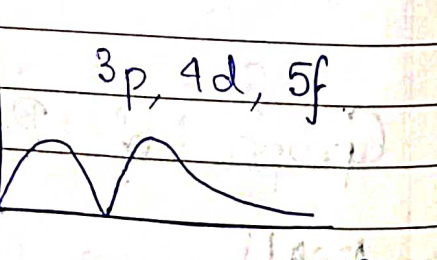 3p, 4d, 5f